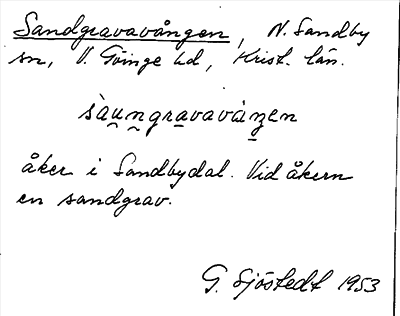 Sandgravavången, N. Sandby
sn, V. Göinge hd, Krist. län.
sàu̯n̯gravavàŋen
åker i Sandbydal. Vid åkern
en sandgrav.
G. Sjöstedt 1953